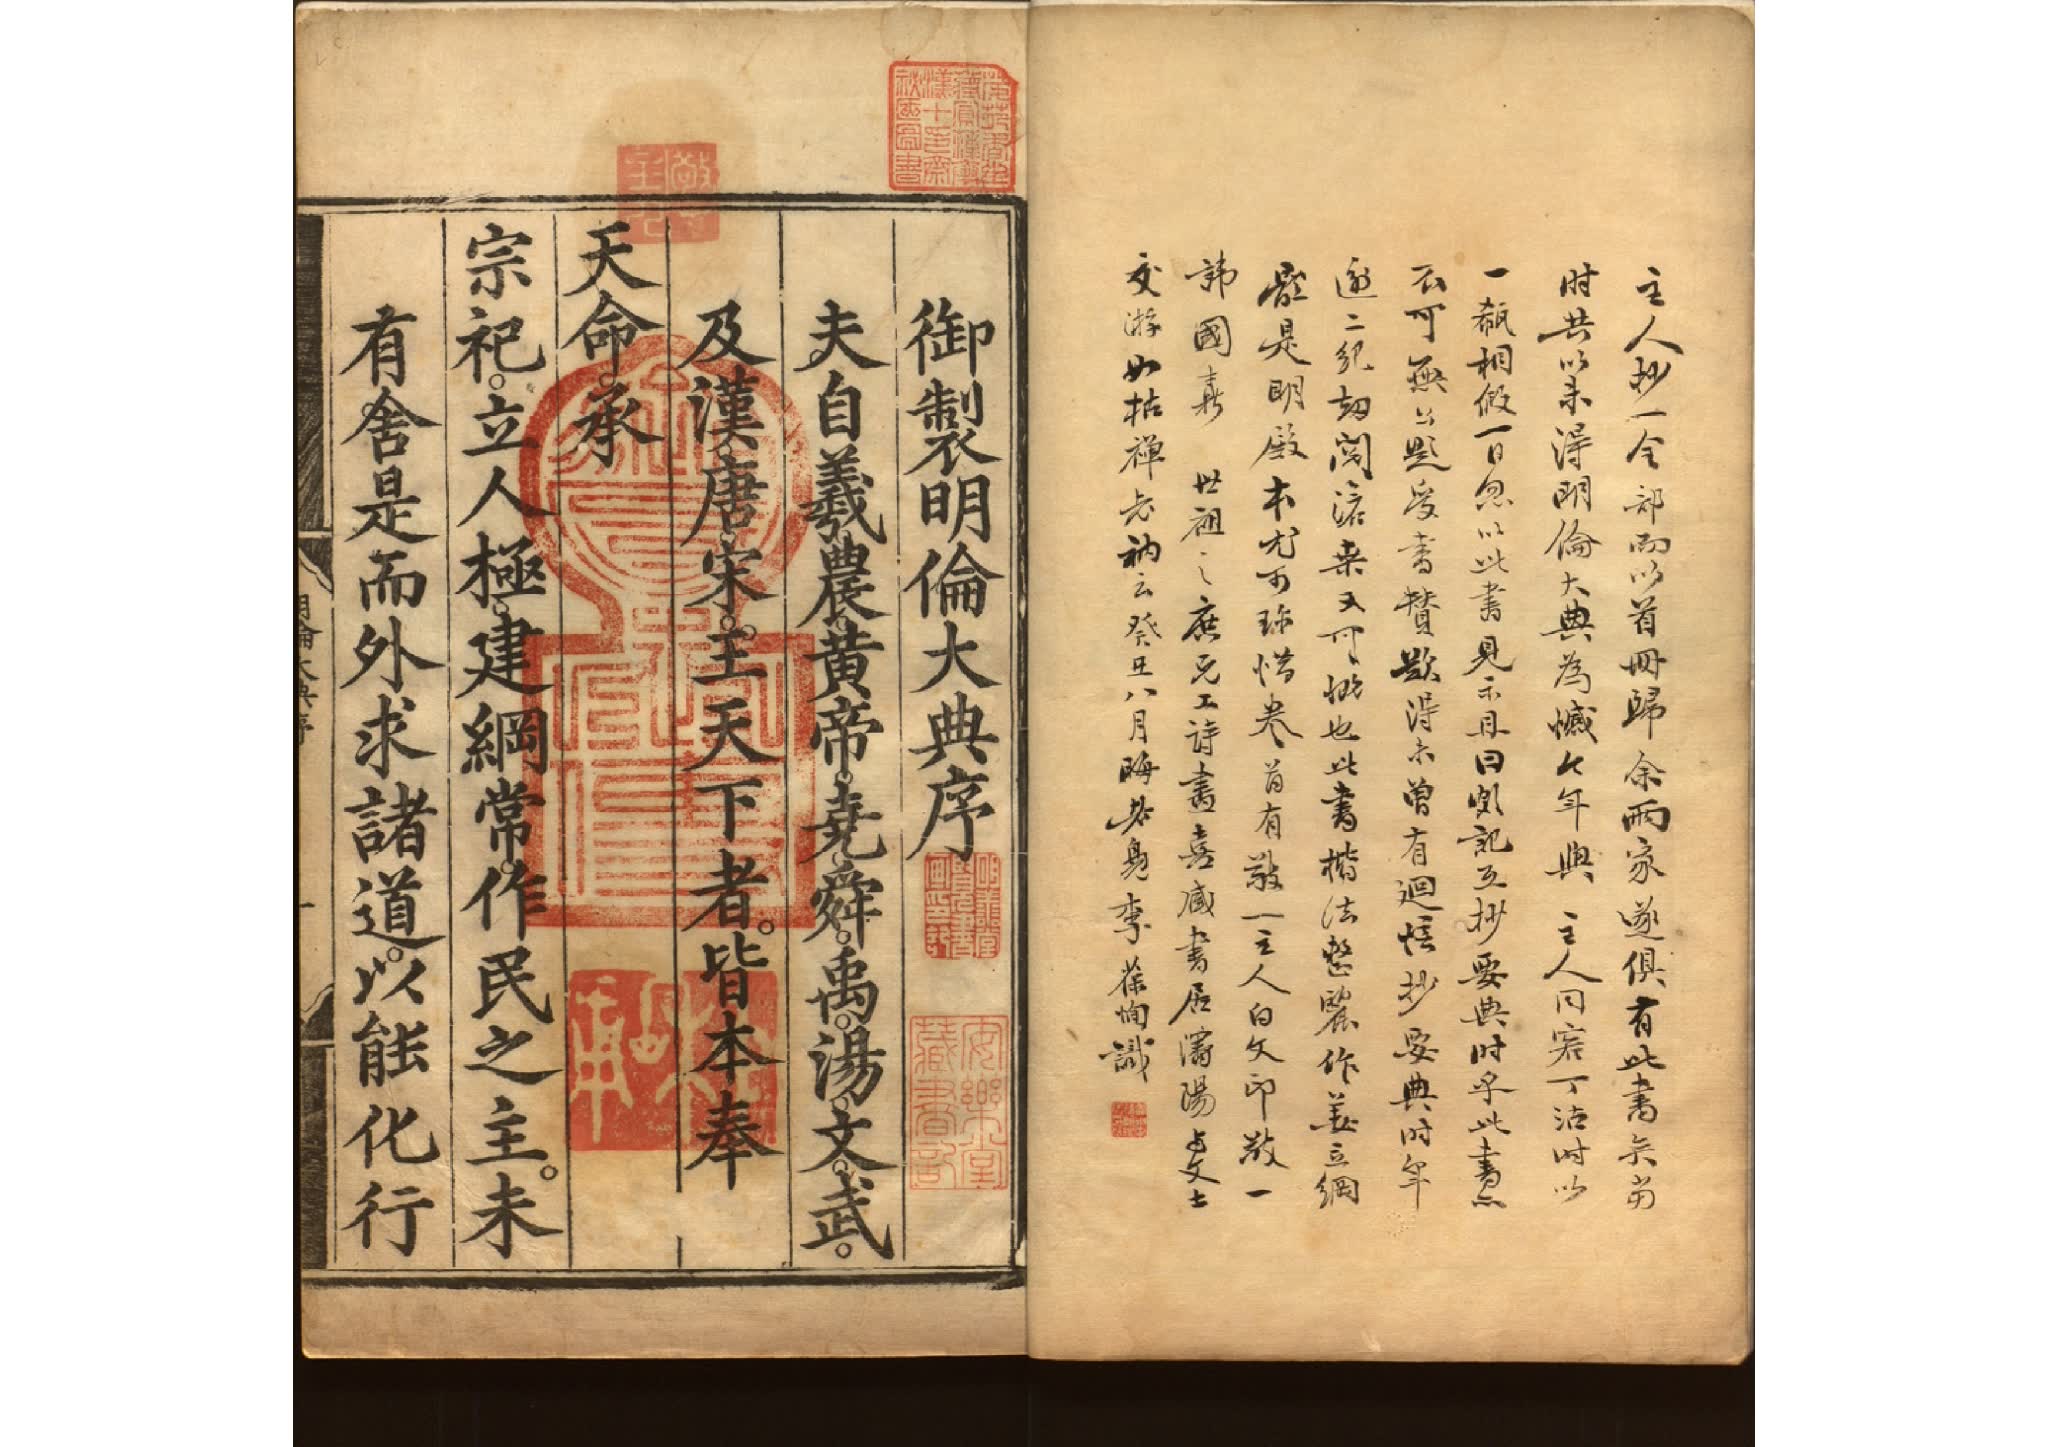 主人抄一全部而以首冊歸余兩家遂俱有此書矣當
時共以未得明倫大典為憾今年與 主人同客丁沽時以
一瓻相假一日忽以此書見示且曰猶記互抄要典時乎此書亦
不可無公題受書贊歎得未曾有迴憶抄要典時年
逾二紀劫閱滄桑又可慨也此書楷法整麗作義立綱
嚴是明殿本尤可珍惜卷首有敬一主人白文印敬一
諱國鼐 世祖之庶兄工詩畫喜藏書居瀋陽與文士
交游如枯禪老衲云癸丑八月晦茗叟李葆恂識
御製明倫大典序
夫自羲農黄帝堯舜禹湯文武
及漢唐宋王天下者皆本奉
天命承
宗祀立人極建綱常作民之主未
有舍是而外求諸道以能化行
明倫大典序
一
安樂堂
藏書記
明善堂
覽書
畫印記